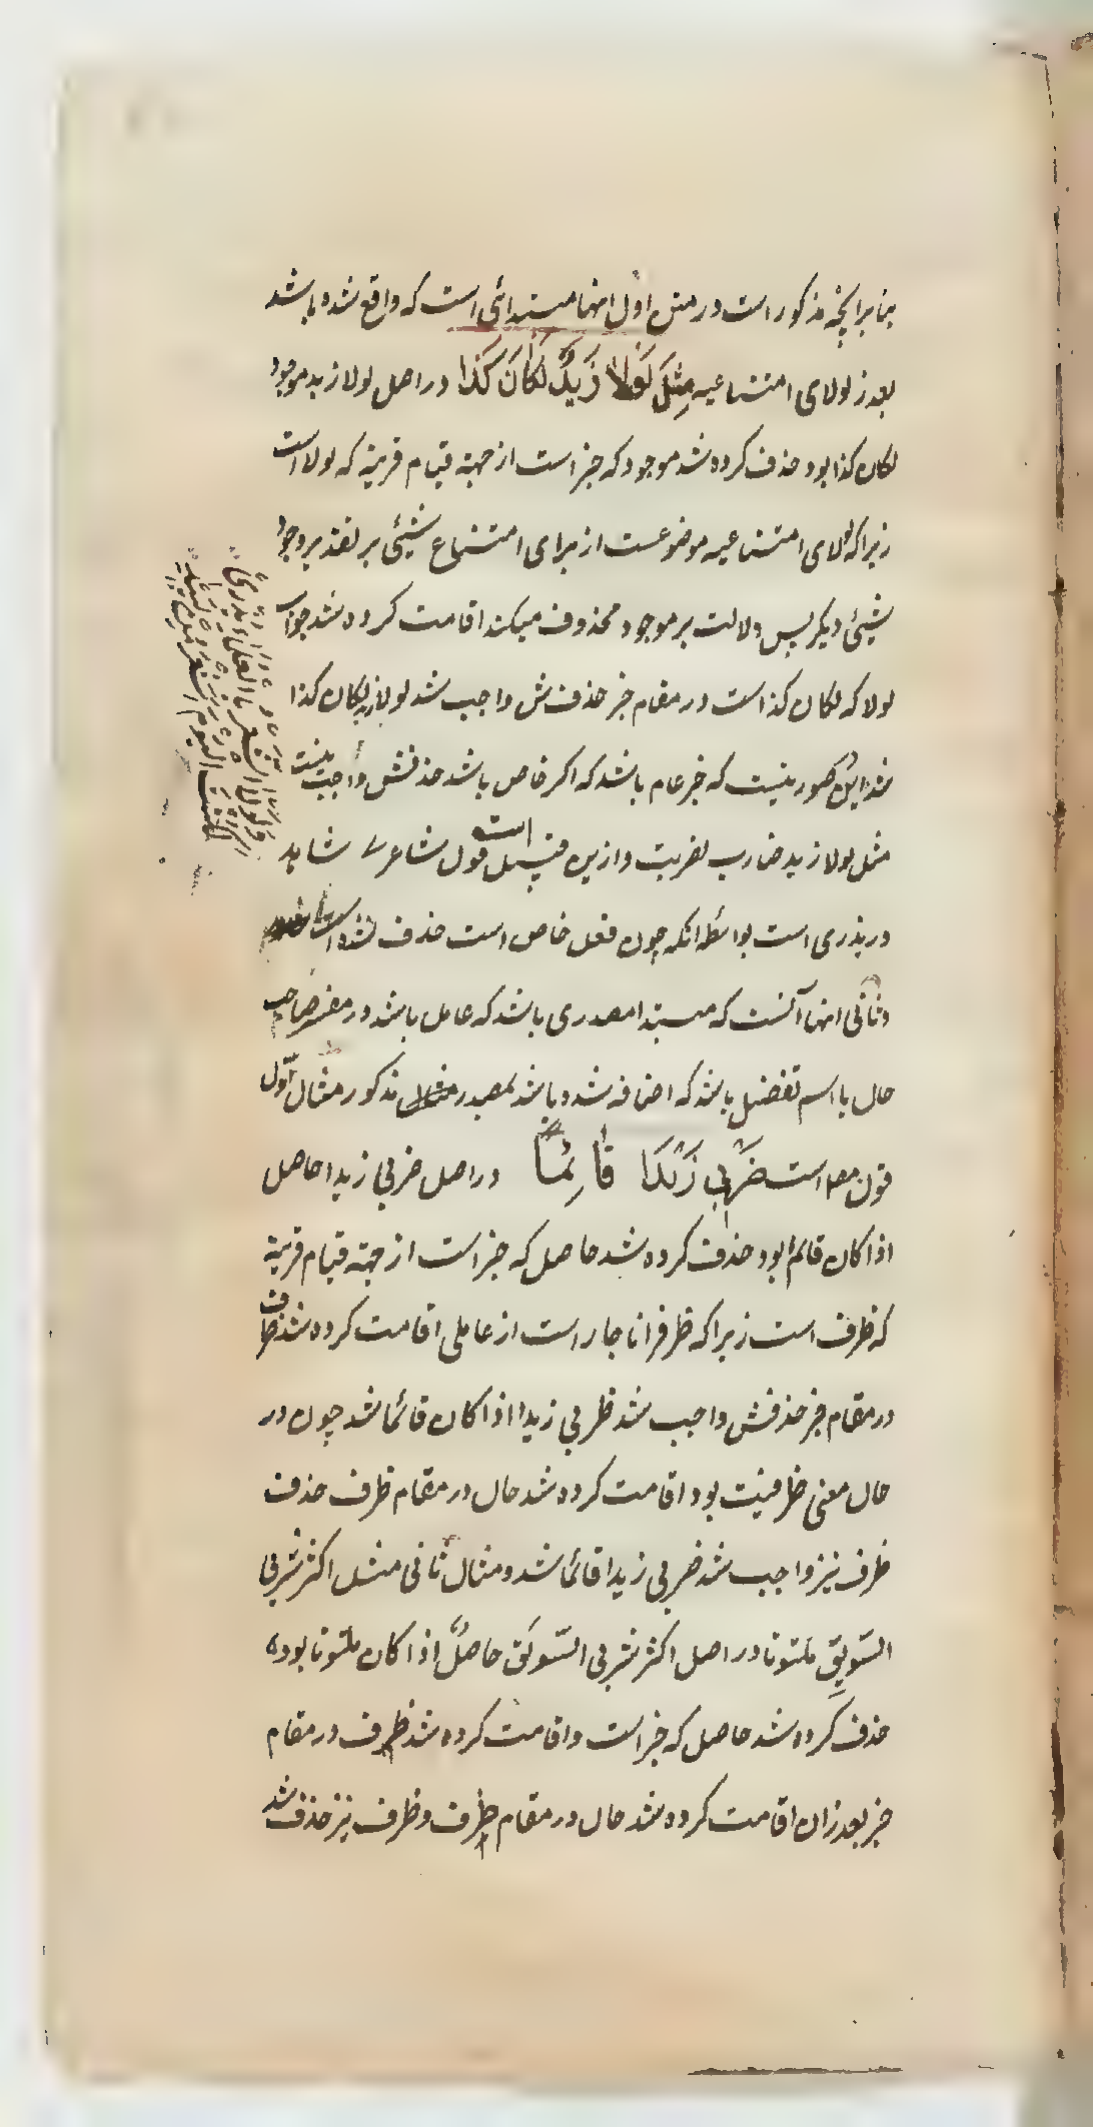 بنا برانچه مذکور است در متن اول انها مبتدائی است که واقع شده باشد
بعد از لولای امتناعیه مِثلَ لَولاٰ زَیدٌ لَکانَ کَذا در اصل لولا زید موجود
لکان کذا بود حذف کرده شد موجود که خبر است از جهة قیام قرینه که لولا است
زیرا که لولای امتناعیه موضوعست از برای امتناع شیئی بر تقدیر وجود
شیئی دیگر پس دلالت بر موجود محذوف میکند اقامت کرده شد جواب
لولا که لکان کذا است در مقام خبر حذفش واجب شد لولا زید لکان کذا
شد این در صورتیست که خبر عام باشد که اکر خاص باشد حذفش واجب نیست
مثل لولا زید ضارب لضربت و ازین قبیل است قول شاعر شاهد
در یذری است بواسطه انکه چون فعل خاص است حذف نشده است
و ثانی انها آنست که مبتدا مصدری باشد که عامل باشد در مفسر صاحب
حال یا اسم تفضیل باشد که اضافه شده باشد بمصدر مذکور مثال اوّل
قول مصـ است ضَربی زَیْدًا قٰائِمًا در اصل ضربی زیدا حاصل
اذا کان قائما بود حذف کرده شد حاصل که خبر است از جهة قیام قرینه
که ظرف است زیرا که ظرفرا ناچار است از عاملی اقامت کرده شد ظرف
در مقام خبر حذفش واجب شد ضربی زیدا اذا کان قائما شد چون در
حال معنی ظرفیت بود اقامت کرده شد حال در مقام ظرف حذف
ظرف نیز واجب شد ضربی زیدا قائما شد و مثال ثانی مثل اکثر شربی
السّویقِ ملتوتا در اصل اکثر شربی السّویق حاصلٌ اذا کان ملتوتا بود
حذف کرده شد حاصل که خبر است و اقامت کرده شد ظرف در مقام
خبر بعد زان اقامت کرده شد حال در مقام ظرف و ظرف نیز حذف شد
ولولا الشعر بالعلماء یذری
لکنت الیوم اشعر من لبید